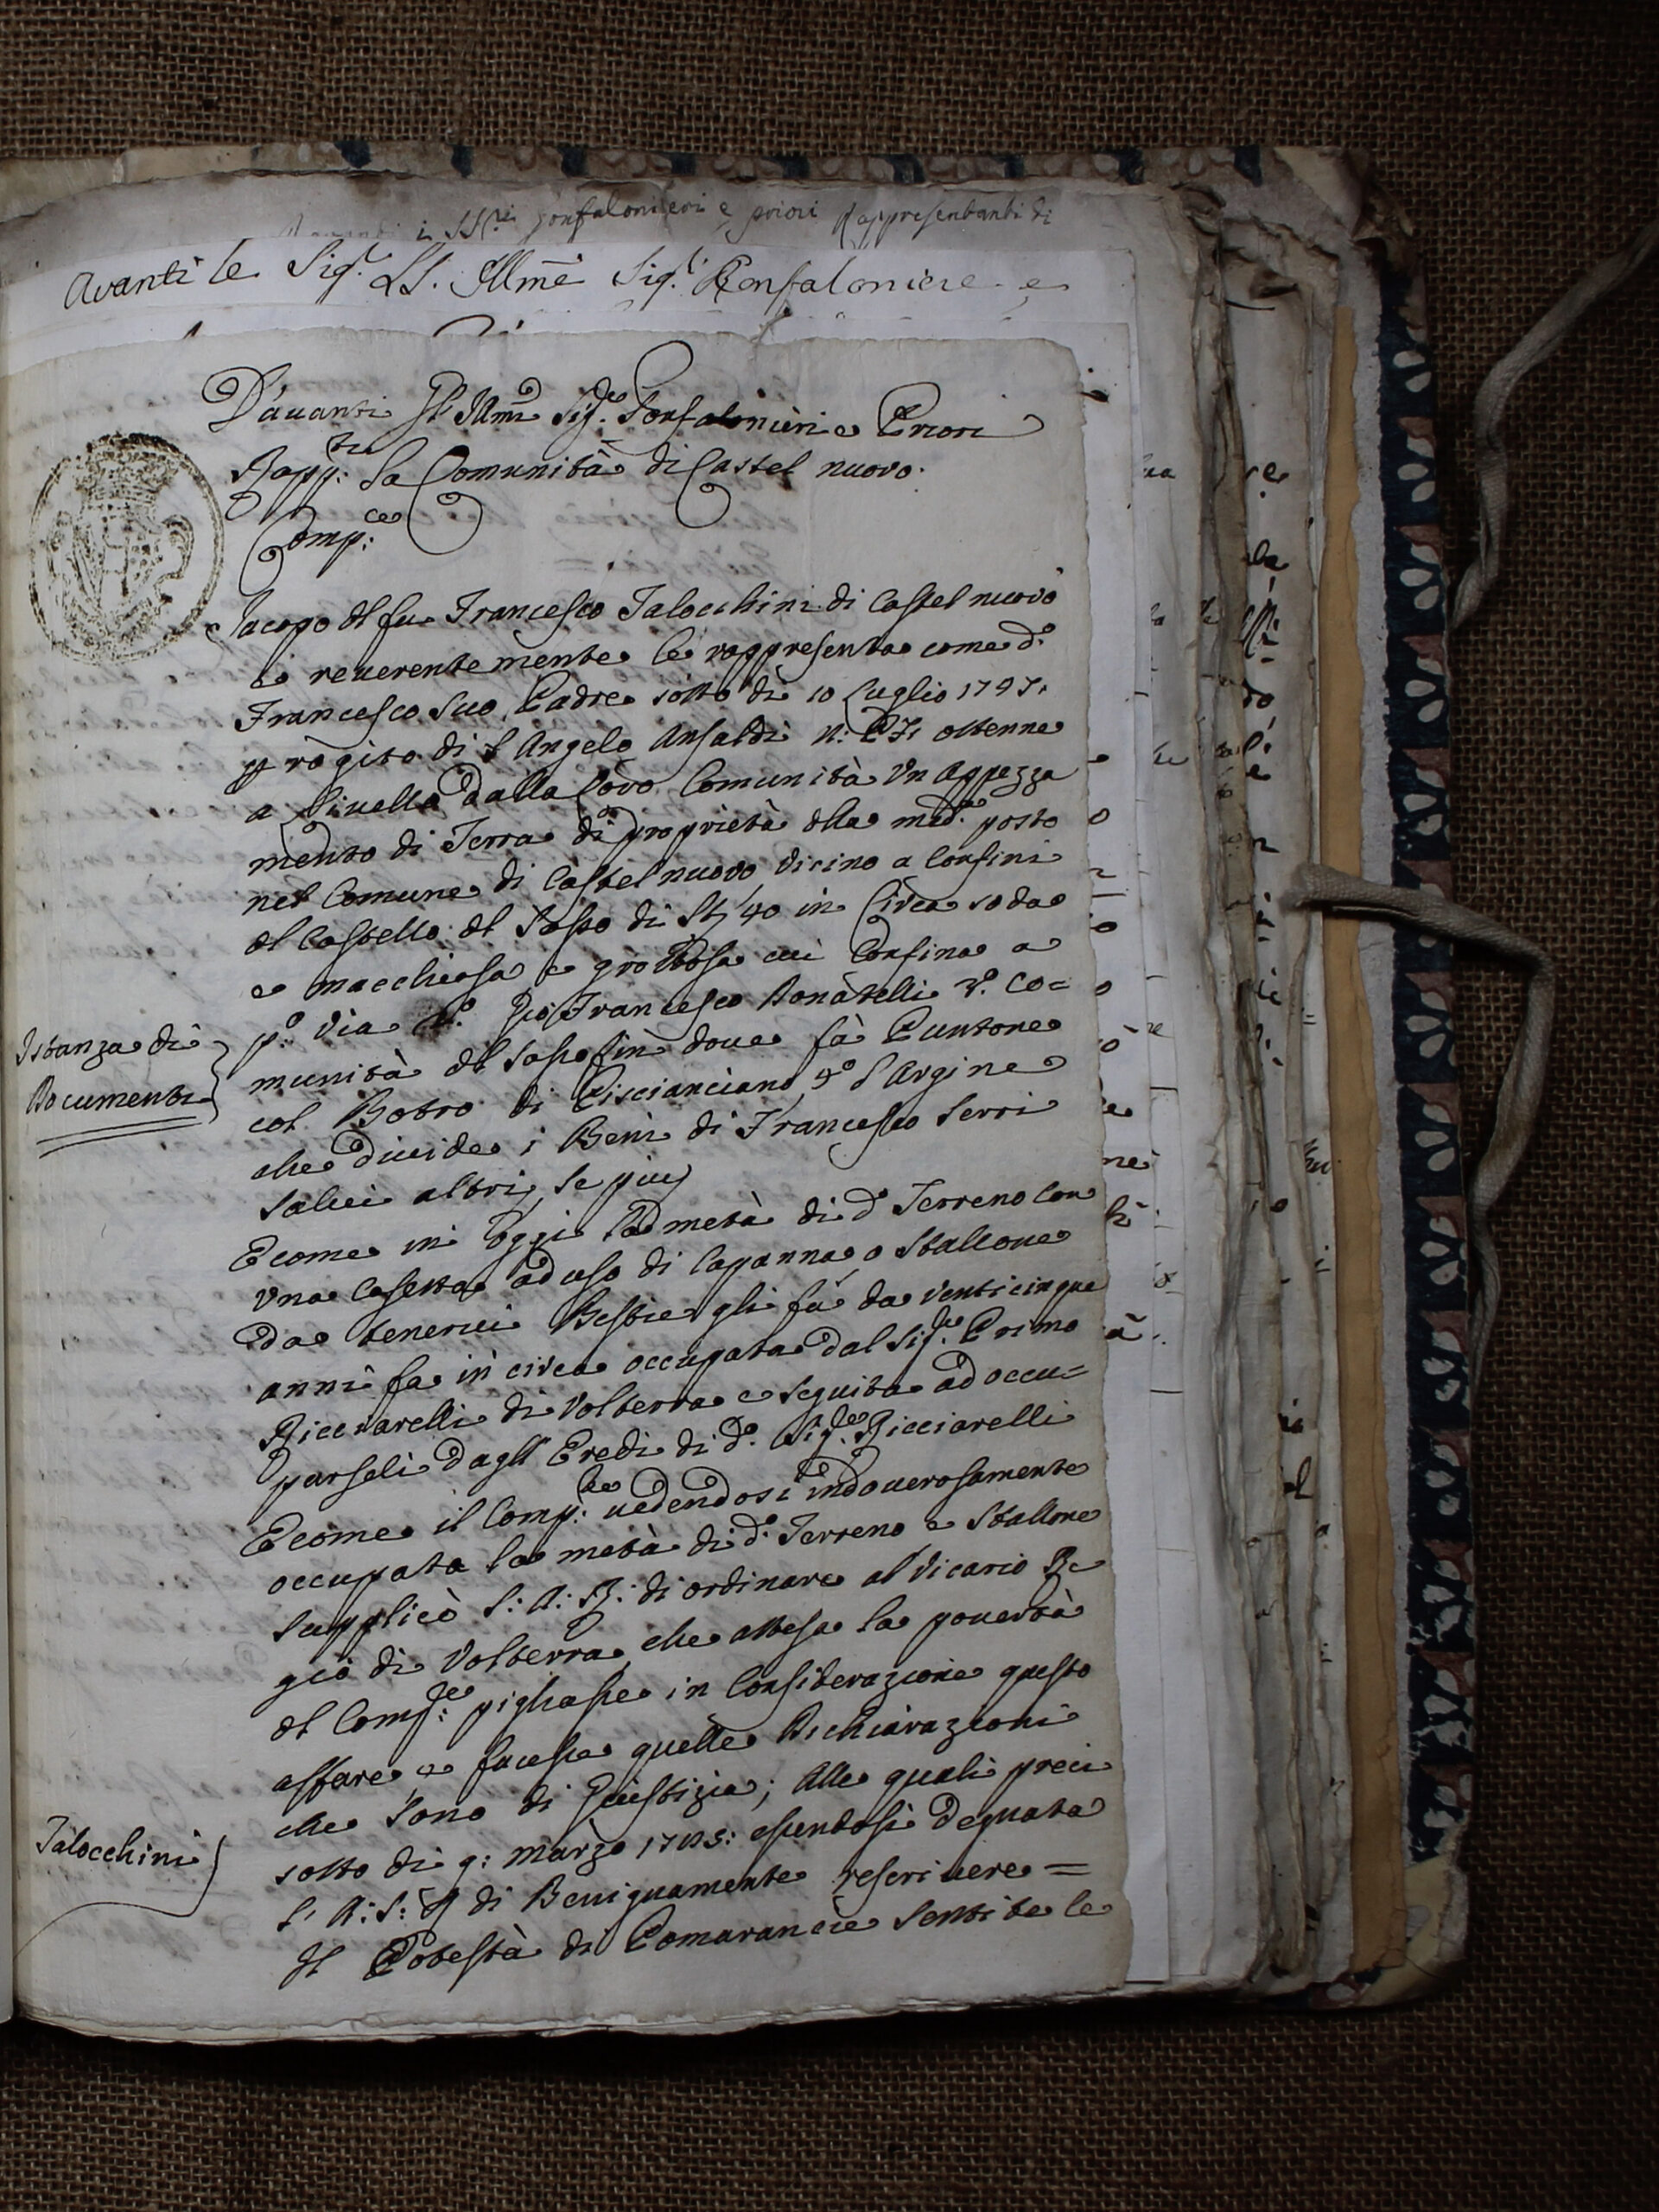 i SS.ri gonfalonieri e priori Rappresentanti di
Avanti le Sig.r LS. Illme Sig.ri Gonfaloniere e
D'auanti Gl'Illmi Sig.re Gonfalonieri e Priori
Rapp:ti La Comunità di Castel nuovo.
Comp:ce
Jacopo del fu Francesco Talocchini di Castel nuovo
e reuerentemente le rappresenta come d.o
Francesco suo Padre sotto dì 10 Luglio 1747.
p rogito di S Angelo Ansaldi N: P F: ottenne
a Liuello dalla Loro Comunità Vn Appezza
mento di Terra di proprietà della med.a posto
nel Comune di Castel nuovo vicino a Confini
del Castello del Sasso di St 40 in Circa soda
e macchiosa e grottosa cui Confina a
p.o Via 2.o Gio Francesco Donatelli 3.o Co=
munità del Sasso fin doue fà Puntone
col Botro di Piscianciano, 4.o l'Argine
che diuide i Beni di Francesco Serri
Salui altri, se piu
E come in oggi la metà di d.o Terreno con
Vna Casetta ad uso di Capanna, o Stallone
da teneruei Bestie gli fù da Venticinque
anni fa in circa occupata dal Sig.re Primo
Ricciarelli di Volterra e seguita ad occu=
parseli dagli Eredi di d.o Sig.re Ricciarelli
E come il Comp:te uedendosi indouerosamente
occupata la metà di d.o Terreno e Stallone
Supplicò S: A: R: di ordinare al Vicario Re
gio di Volterra, che attesa la pouertà
del Comp:te pigliasse in Considerazione questo
affare, e facesse quelle Dichiarazioni
che sono di Giustizia; Alle quali preci
sotto dì 9: marzo essendosi degnata
S. A: S: R di Benignamente rescriuere =
Il Potestà di Pomarancie sentite le
Istanza di
Documenti
Talocchini